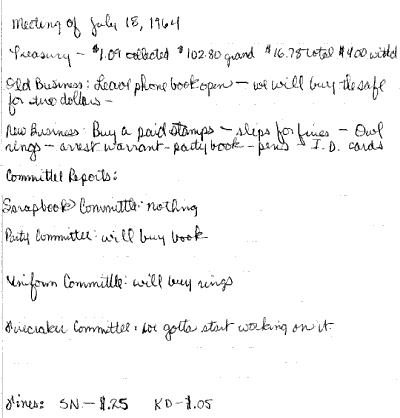 Meeting of July 18, 1964
Treasury - $1.09 collected $102.80 grand $16.78 total $4.00 withd
Old Business: Leave phone book open - we will buy the safe
for two dollars -
New Business: Buy a paid stamps - slips for fines - Owl
rings - arrest warrant - party book - pens - I.D. cards
Committee Reports:
Scrapbook Committee: nothing
Party Committee: will buy book
Uniform Committee: will buy rings
Firecraker Committee: we gotta start working on it.
Fines: SN - $.25 KD - $.05